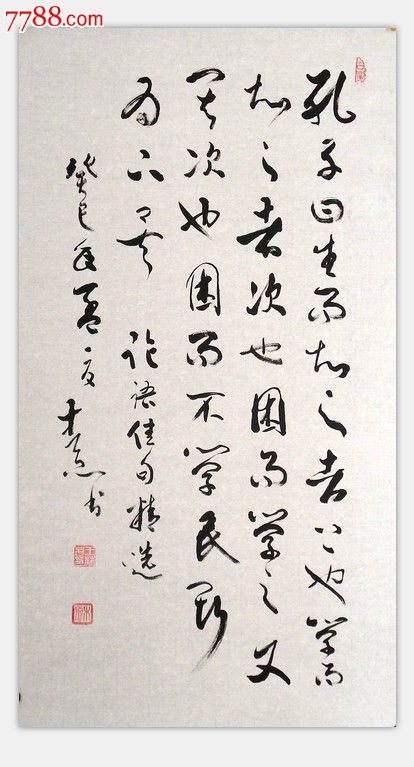 7788.com
孔子曰生而知之者上也学而
知之者次也困而学之又
其次也困而不学民斯
为下矣 论语佳句精选
癸巳年孟夏
书